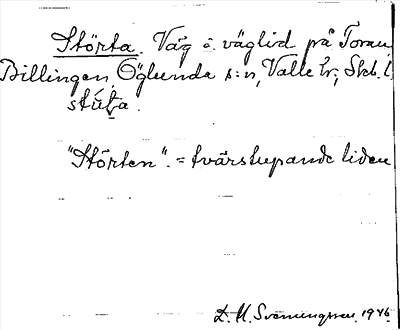 Störta. Väg o. väglid på Toran
Billingen, Öglunda s:n, Valle hr, Skb. l.
stúta.
"Störten". = tvärstupande liden
L. M. Svenungsson. 1946.